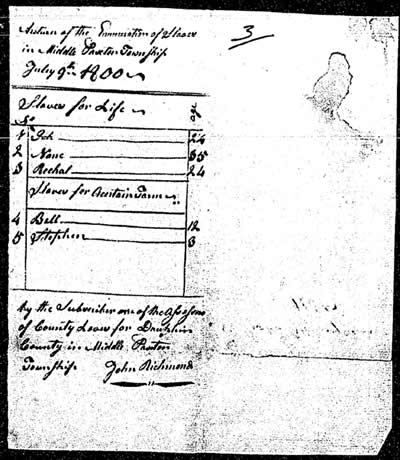 Return of the Enumeration of Slaves
in Middle Paxton Township
July 9th 1800
3
Slaves for Life age
No
1 24
2 Nanc 35
3 Rachal 24
Slaves for Acertain Term
4 Bell 12
5 Stephen 3
by the Subscriber one of the Assesors
of County Leves for Dauphin
County in Middle Paxton
Township John Richmond